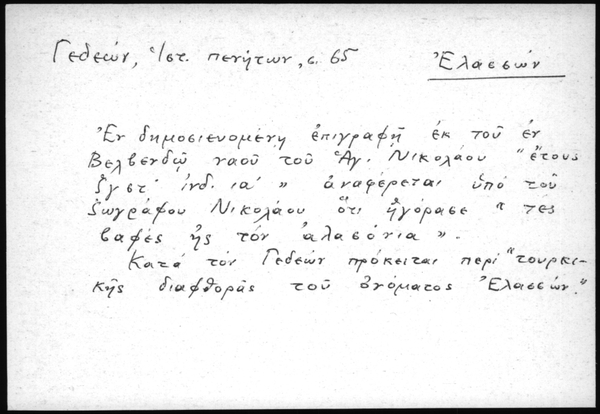 Γεδεών, Ἱστ. πενήτων, σ. 65
Ἐλασσών
Ἐν δημοσιευομένῃ ἐπιγραφῇ ἐκ τοῦ ἐν
Βελβενδῷ ναοῦ τοῦ Ἁγ. Νικολάου "ἔτους
ἰνδ. ια' " ἀναφέρεται ὑπό τοῦ
ζωγράφου Νικολάου ὅτι ἠγόρασε "τές
βαφές ἠς τόν ἀλασόνια".
Κατά τόν Γεδεών πρόκειται περί "τουρκι-
κῆς διαφθορᾶς τοῦ ὀνόματος Ἐλασσών."